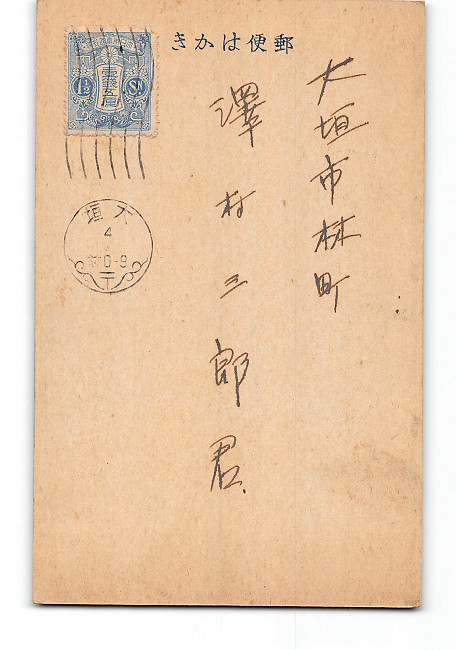 郵便はかき
大垣市林町
澤村三郎君
壹錢五厘
1½ Sn
大垣
4
0-9